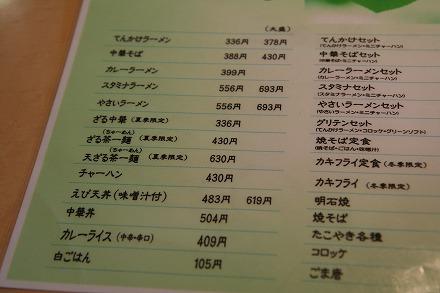 (大盛)
てんかけラーメン 336円 378円
中華そば 388円 430円
カレーラーメン 399円
スタミナラーメン 556円 693円
やさいラーメン 556円 693円
ざる中華 (夏季限定) 336円
(ちゃーめん)
ざる茶一麺 (夏季限定) 430円
(ちゃーめん)
天ざる茶一麺 (夏季限定) 630円
チャーハン 430円
えび天丼 (味噌汁付) 483円 619円
中華丼 504円
カレーライス (中辛・辛口) 409円
白ごはん 105円
てんかけセット
(てんかけラーメン・ミニチャーハン)
中華そばセット
(中華そば・ミニチャーハン)
カレーラーメンセット
(カレーラーメン・ミニチャーハン)
スタミナセット
(スタミナラーメン・ミニチャーハン)
やさいラーメンセット
(やさいラーメン・ミニチャーハン)
グリテンセット
(てんかけラーメン・コロッケ・グリーンソフト)
焼そば定食
(焼そば・ごはん・味噌汁)
カキフライ定食 (冬季限定)
カキフライ (冬季限定)
明石焼
焼そば
たこやき各種
コロッケ
ごま唐